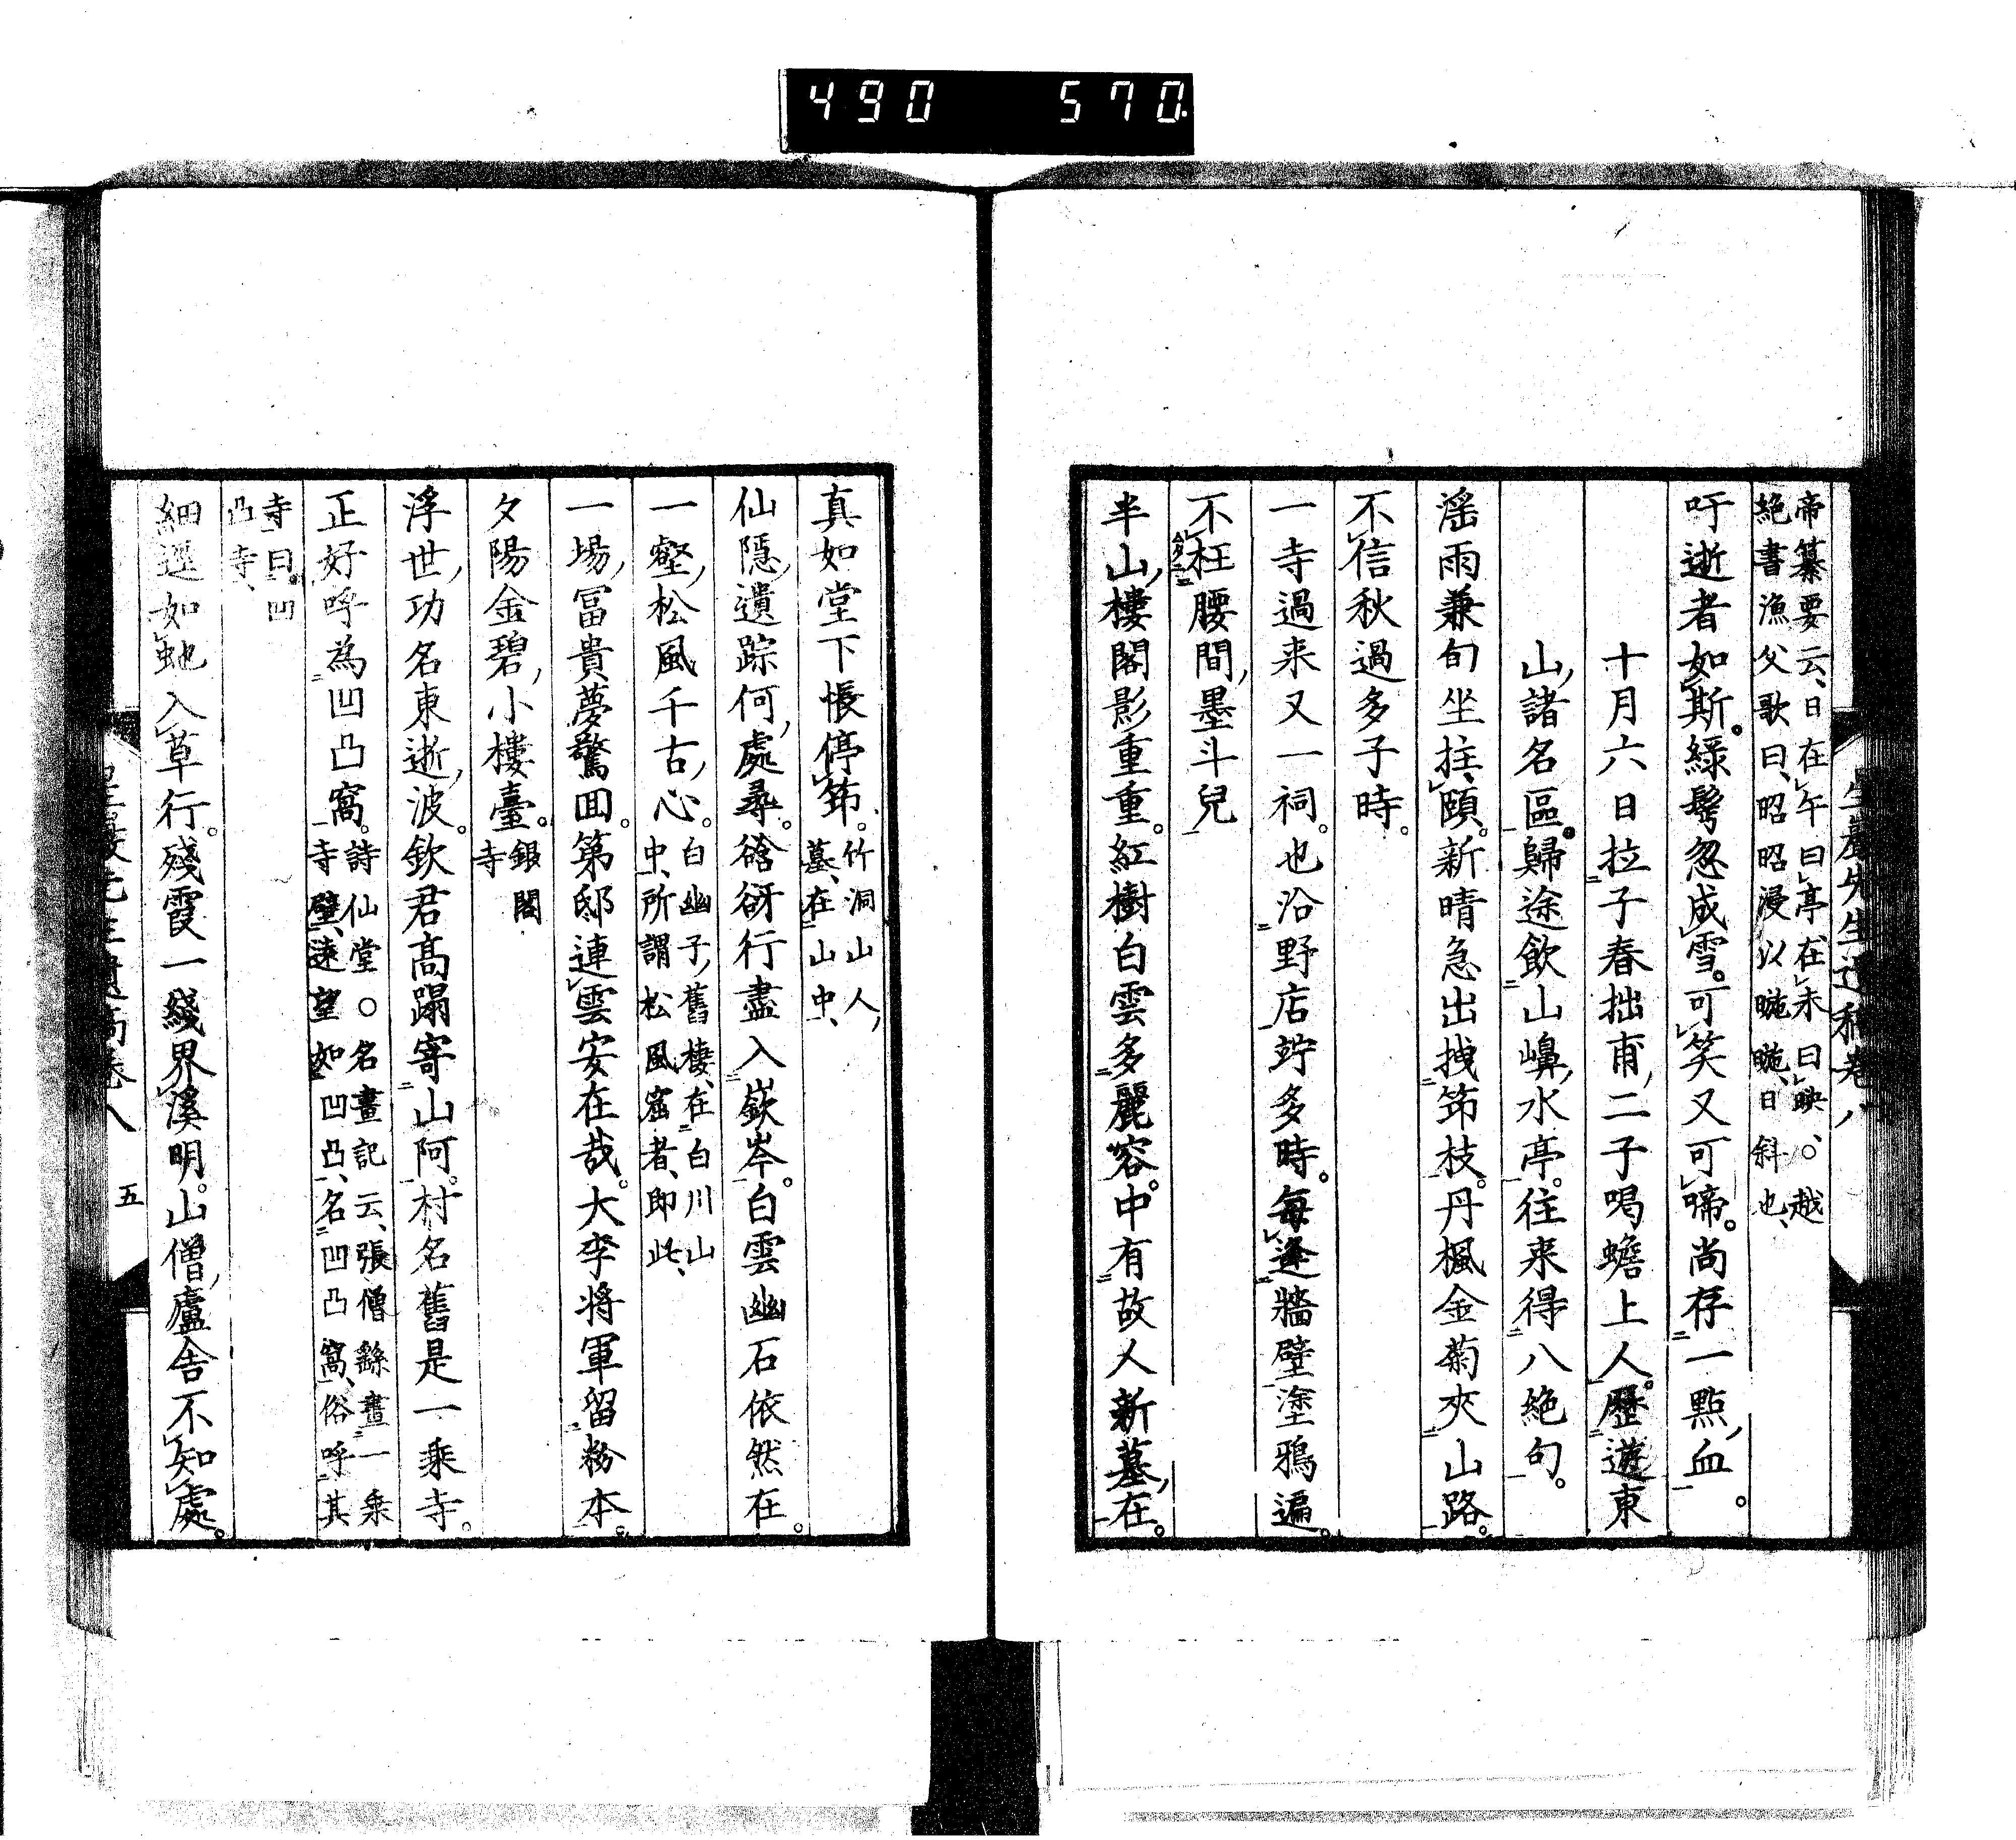 490 570
帝纂要云、日在午曰亭在未曰映。○越
絶書漁父歌曰、昭昭浸以䁺䁺、日斜也、
吁逝者如斯。緑髩忽成雪。可笑又可啼。尚存一點血。
十月六日拉子春拙甫、二子喝蟾上人。歷遊東
山諸名區。歸途飲山嶹水亭。往来得八絶句。
滛雨兼旬坐拄頤。新晴急出拽筇枝。丹楓金菊夾山路。
不信秋過多子時。
一寺過来又一祠。也沿野店竚多時。每逢牆壁塗鴉遍。
不枉腰間墨斗兒
半山樓閣影重重。紅樹白雲多麗容。中有故人新墓在。
真如堂下悵停筇。竹洞山人、
墓、在山中、
仙隱遺踪何處尋。谽谺行盡入嶔岑。白雲幽石依然在。
一壑松風千古心。白幽子舊棲、在白川山
中、所謂松風窟者、即此、
一場冨貴夢驚回。第邸連雲安在哉。大李将軍留粉本。
夕陽金碧小樓臺。銀閣
寺
浮世功名東逝波。欽君高蹋寄山阿。村名舊是一乘寺。
正好呼為凹凸窩。詩仙堂○名畫記云、張僧繇畫一乘
寺壁、遠望如凹凸、名凹凸窩、俗呼其
寺曰。凹
凸寺、
細逕如虵入草行。殘霞一綫界溪明。山僧廬舎不知處。
五